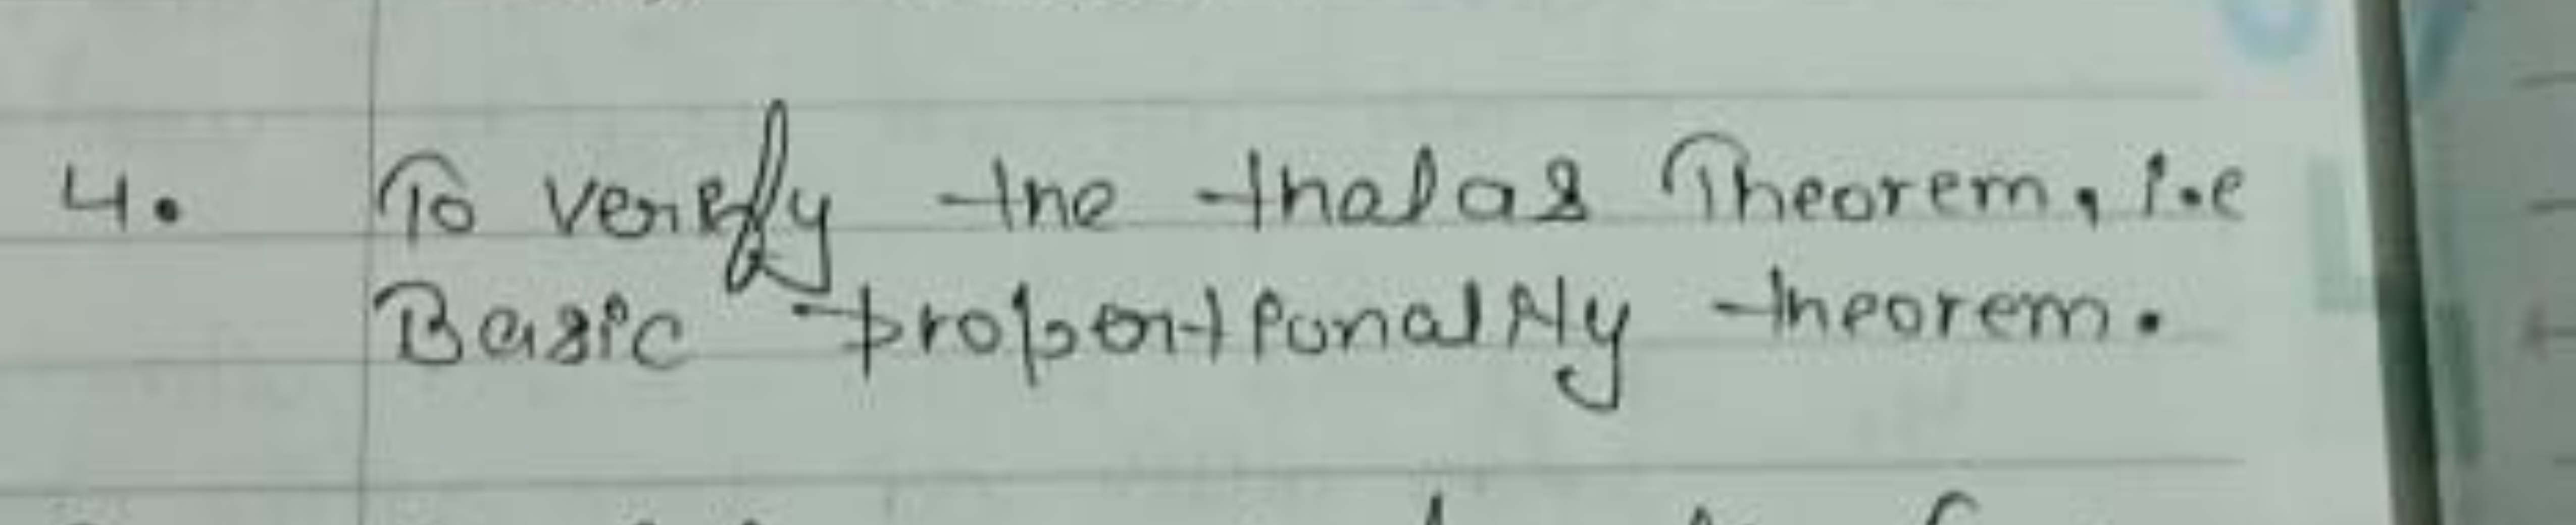 4. To verify the thalas Theorem, i.e
Basic proportionality theorem.